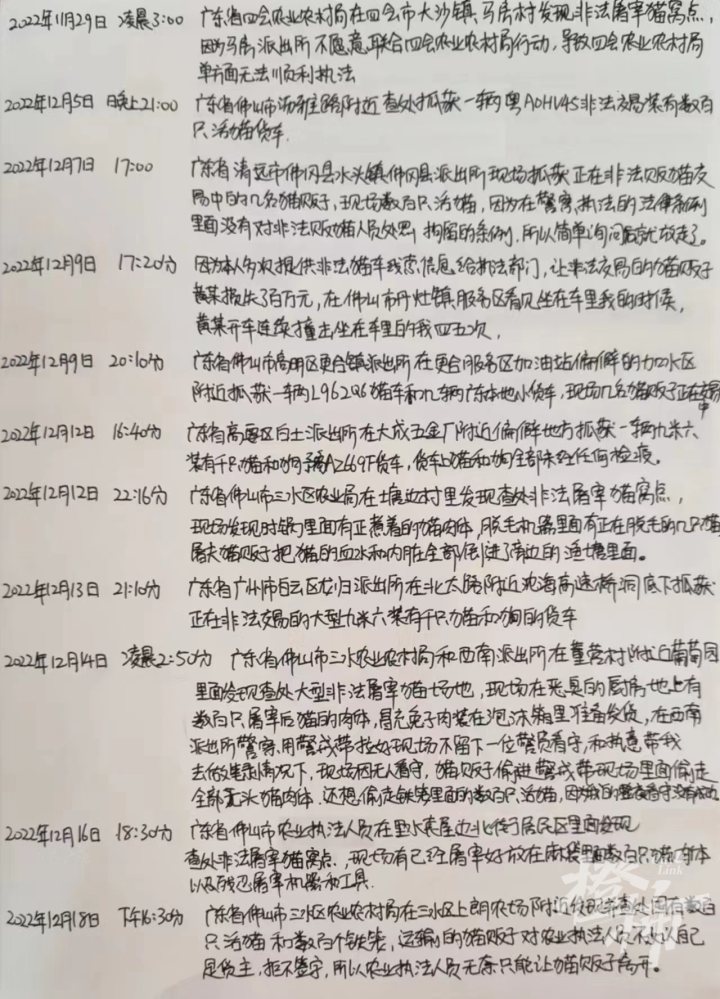 2022年11月29日 凌晨3:00 广东省四会农业农村局在四会市大沙镇马房村发现非法屠宰猫窝点,
因为马房派出所不愿意联合四会农业农村局行动,导致四会农业农村局
单方面无法顺利执法
2022年12月5日 晚上21:00 广东省佛山市 附近查处抓获一辆粤A0HV45非法交易装有数百
只活猫货车.
2022年12月7日 17:00 广东省清远市佛冈县水头镇佛冈县派出所现场抓获正在非法贩猫交
易中的几名猫贩子,现场数百只活猫,因为在警察执法的法律条例
里面没有对非法贩猫人员处罚拘留的条例,所以简单询问后就放走了。
2022年12月9日 17:20分 因为本人多次提供非法猫车线索信息给执法部门,让非法交易的猫贩子
黄某损失了百万元,在佛山市丹灶镇服务区看见坐在车里我的时候,
黄某开车连续撞击坐在车里的我四五次,
2022年12月9日 20:10分 广东省佛山市高明区更合镇派出所在更合服务区加油站偏僻的加水区
附近抓获一辆 L962Q6猫车和几辆广东本地小货车,现场几名猫贩子正在交易
中
2022年12月12日 16:40分 广东省高要区白土派出所在大成五金厂附近偏僻地方抓获一辆九米六
装有千只猫和狗 AZ669F货车,货车上猫和狗全部未经任何检疫。
2022年12月12日 22:16分 广东省佛山市三水区农业局在塘边村里发现查处非法屠宰猫窝点,
现场发现时锅里面有正煮着的猫肉体,脱毛机器里面有正在脱毛的几只猫
屠夫猫贩子把猫的血水和内脏全部倒进了旁边的渔塘里面。
2022年12月13日 21:10分 广东省广州市白云区龙归派出所在北太路附近沈海高速桥洞底下抓获
正在非法交易的大型九米六装有千只猫和狗的货车
2022年12月14日 凌晨2:50分 广东省佛山市三水农业农村局和西南派出所在董营村附近葡萄园
里面发现查处大型非法屠宰猫场地,现场在恶臭的厨房地上有
数百只屠宰后猫的肉体,冒充兔子肉装在泡沫箱里准备发货,在西南
派出所警察用警戒带拉好现场不留下一位警员看守,和执意带我
去做笔录情况下,现场因无人看守,猫贩子偷进警戒带现场里面偷走
全部无头猫肉体.还想偷走铁笼里面的数百只活猫,因为我的 看守没有成功
2022年12月16日 18:30分 广东省佛山市农业执法人员在里水 边北 居民区里面发现
查处非法屠宰猫窝点,现场有已经屠宰好放在麻袋里面数百只猫肉体
以及残忍屠宰机器和工具.
2022年12月18日 下午16:30分 广东省佛山市三水区农业农村局在三水区上朗农场附近发现并查处因有数百
只活猫和数百个铁笼,运输的猫贩子对农业执法人员不承认自己
是货主,拒不签字,所以农业执法人员无奈只能让猫贩子离开。
橙柿
Link